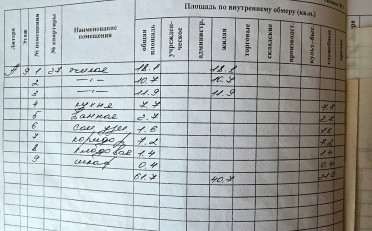 Площадь по внутреннему обмеру (кв.м.)
Литера Этаж № помещения № квартиры Наименование помещения общая площадь учрежден-ческое администр. жилая торговые складские производст. культ.-быт.
А 9 1 27 жилая 18.1 18.1
2 —"— 10.7 10.7
3 —"— 11.9 11.9
4 кухня 7.7 7.7
5 ванная 2.7 2.7
6 сан. узел 1.6 1.6
7 коридор 7.2 7.2
8 кладовая 1.4 1.4
9 шкаф 0.4 0.4
61.7 40.7